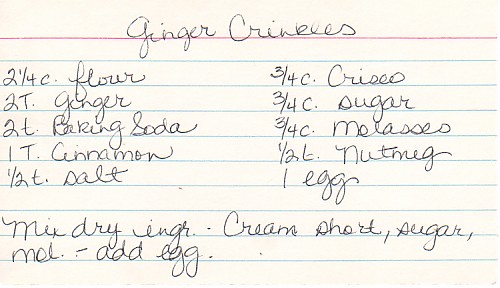 Ginger Crinkles
2 1/4 c. flour
2 T. Ginger
2 t. Baking Soda
1 T. Cinnamon
1/2 t. salt
3/4 c. Crisco
3/4 c. sugar
3/4 c. Molasses
1/2 t. Nutmeg
1 egg
Mix dry ingr. - Cream short, sugar,
mol. - add egg.